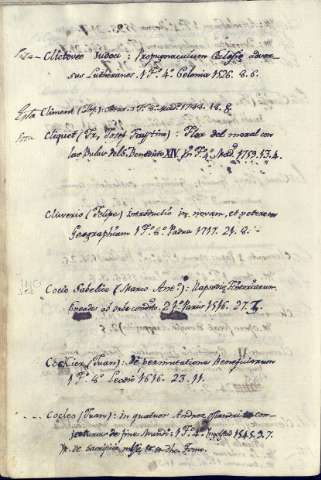 Clictoveo Judoci: Propugnaculum Eclesiæ adver-
sus Lutheranos. 1 t. 4º Colonia 1526. 8. 6.
Esta Climent (Illmo) 1 t. 8º Madd 1788. 18. 8.
Cliquet (Fr. Josef Faustino): Flor del moral con
las Bulas del S. Benedicto XIV. En Pº 4º Madd. 1759. 13. 4.
Cluverio (Felipe) introductio in novam, et veterem
Geographiam 1 tº 8º Padua 1717. 21. 8.
Cocio Sabelio (Marco Antº): Rapsodiæ Historiarum
Eneades ab orbe condito. 2 tº Paris 1516. 27. 7.
Cockier (Juan): de permutatione Beneficiorum
1 tº 8º Leodio 1616. 23. 11.
Cocleo (Juan): in quatuor Andreæ Osiandri con-
jecturas de fine Mundi: 1 tº 4º 1545. 9. 7.